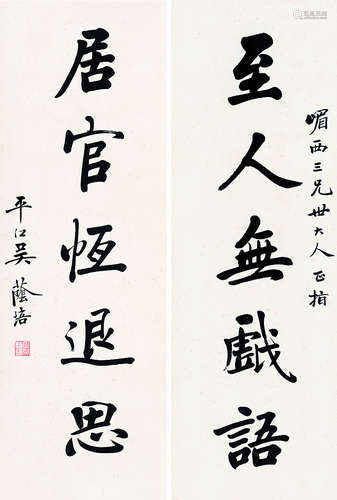 嵋西三兄世大人正楷
至人無戲語
居官恆退思
平江吳蔭培